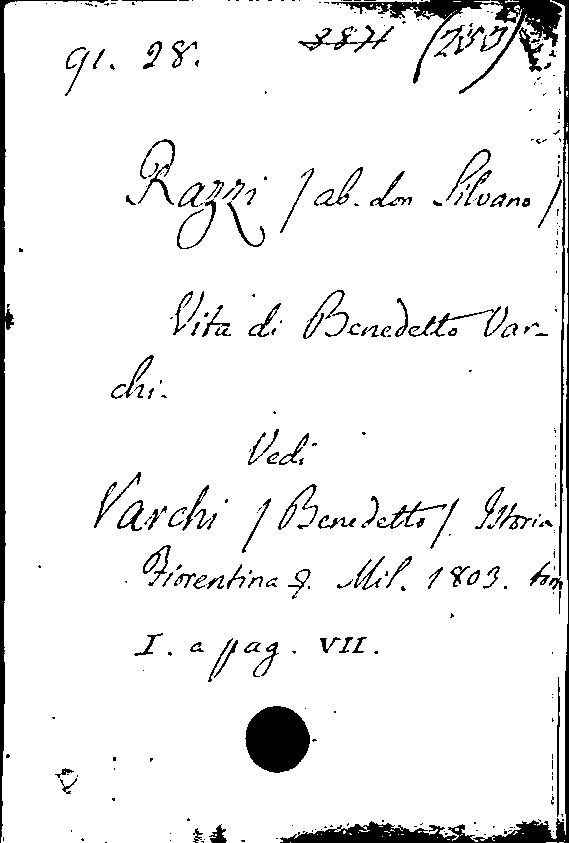 91. 28. 3871 (250)
Razzi / ab. don Silvano /
Vita di Benedetto Var-
chi.
Vedi
Varchi / Benedetto /. Istoria
Fiorentina &. Mil. 1803. tom
I. a pag. VII.